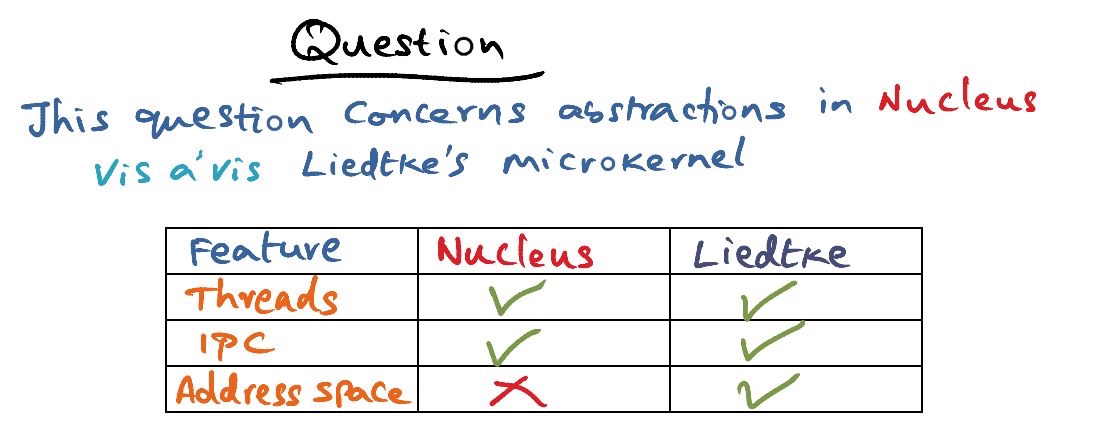 Question
This question concerns abstractions in Nucleus
Vis a' vis Liedtke's microkernel
Feature Nucleus Liedtke
Threads ✓ ✓
IPC ✓ ✓
Address space ✗ ✓